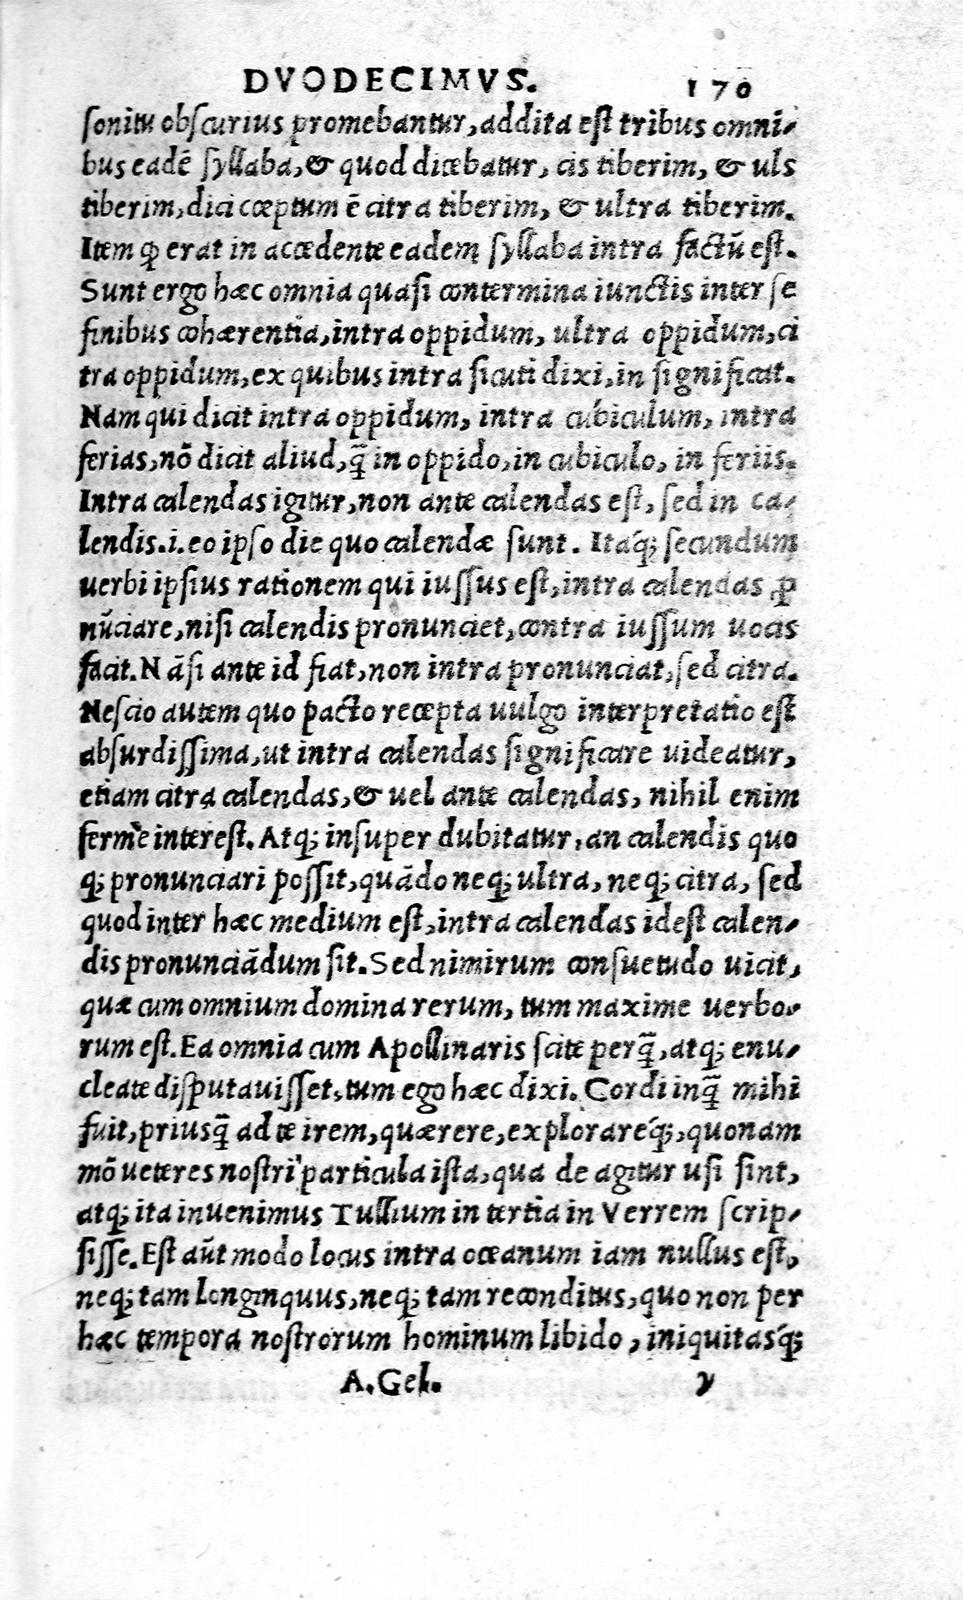 DVODECIMVS. 170
sonitu obscurius promebantur, addita est tribus omni-
bus eadē syllaba, & quod dicebatur, cis tiberim, & uls
tiberim, dici cœptum ē citra tiberim, & ultra tiberim.
Item ꝙ erat in accedente eadem syllaba intra factū est.
Sunt ergo hæc omnia quasi contermina iunctis inter se
finibus cohærentia, intra oppidum, ultra oppidum, ci
tra oppidum, ex quibus intra sicuti dixi, in significat.
Nam qui dicit intra oppidum, intra cubiculum, intra
ferias, nō dicit aliud, q̃ in oppido, in cubiculo, in feriis.
Intra calendas igitur, non ante calendas est, sed in ca-
lendis.i.eo ipso die quo calendæ sunt. Itaq́; secundum
uerbi ipsius rationem qui iussus est, intra calendas ꝓ
nūciare, nisi calendis pronunciet, contra iussum uocis
facit. Nā si ante id fiat, non intra pronunciat, sed citra.
Nescio autem quo pacto recepta uulgo interpretatio est
absurdissima, ut intra calendas significare uideatur,
etiam citra calendas, & uel ante calendas, nihil enim
ferme interest. Atq; insuper dubitatur, an calendis quo
q; pronunciari possit, quādo neq; ultra, neq; citra, sed
quod inter hæc medium est, intra calendas idest calen-
dis pronunciādum sit. Sed nimirum consuetudo uicit,
quæ cum omnium domina rerum, tum maxime uerbo-
rum est. Ea omnia cum Apollinaris scite perq̃, atq; enu-
cleate disputauisset, tum ego hæc dixi. Cordi inq̃ mihi
fuit, priusq̃ ad te irem, quærere, explorareq́;, quonam
mō ueteres nostri particula ista, qua de agitur usi sint,
atq; ita inuenimus Tullium in tertia in Verrem scrip-
sisse. Est aūt modo locus intra oceanum iam nullus est,
neq; tam longinquus, neq; tam reconditus, quo non per
hæc tempora nostrorum hominum libido, iniquitasq́;
A.Gel. y